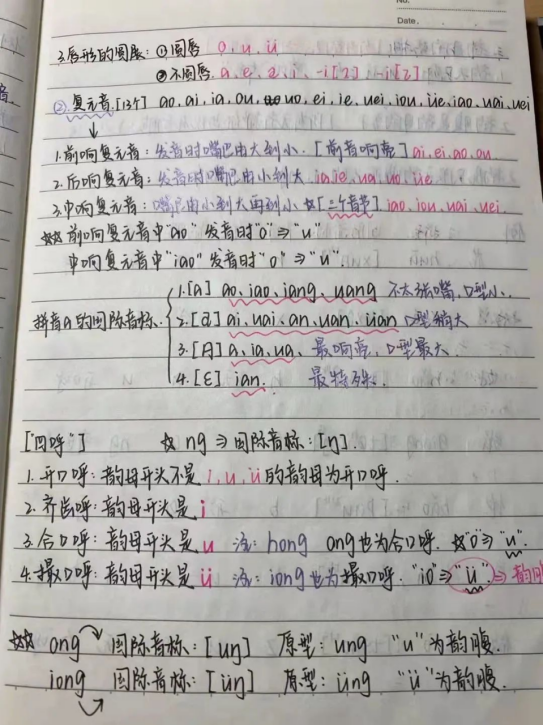 No.
Date.
3.唇形的圆展：①圆唇 o, u, ü
②不圆唇 a, e, ê, i, -i[ɿ] -i[ʅ]
②复元音.[13个] ao, ai, ia, ou, uo, ei, ie, uei, iou, üe, iao, uai, uei
1.前响复元音：发音时嘴巴由大到小.［前音响亮］ai, ei, ao, ou
2.后响复元音：发音时嘴巴由小到大. ia, ie, ua, uo, üe
3.中响复元音：嘴巴由小到大再到小 ☆［三个音节］iao, iou, uai, uei.
☆☆ 前响复元音中"ao"发音时"o"⇒"u"
中响复元音中"iao"发音时"o"⇒"u".
拼音a的国际音标.
1.[ɑ] ao, iao, iang, uang 不太张嘴，口型小.
2.[a] ai, uai, an, uan, üan 口型稍大
3.[A] a, ia, ua, 最响亮，口型最大.
4.[ε] ian. 最特殊.
["四呼"] ☆ ng ⇒ 国际音标：[ŋ].
1.开口呼：韵母开头不是 i, u, ü 的韵母为开口呼.
2.齐齿呼：韵母开头是 i
3.合口呼：韵母开头是 u 注：hong ong也为合口呼. ☆"o"⇒"u".
4.撮口呼：韵母开头是 ü 注：iong也为撮口呼. "io"⇒"ü" ⇒韵
☆☆ ong 国际音标：[uŋ] 原型：ung "u"为韵腹
iong 国际音标：[üŋ] 原型：üng "ü"为韵腹.